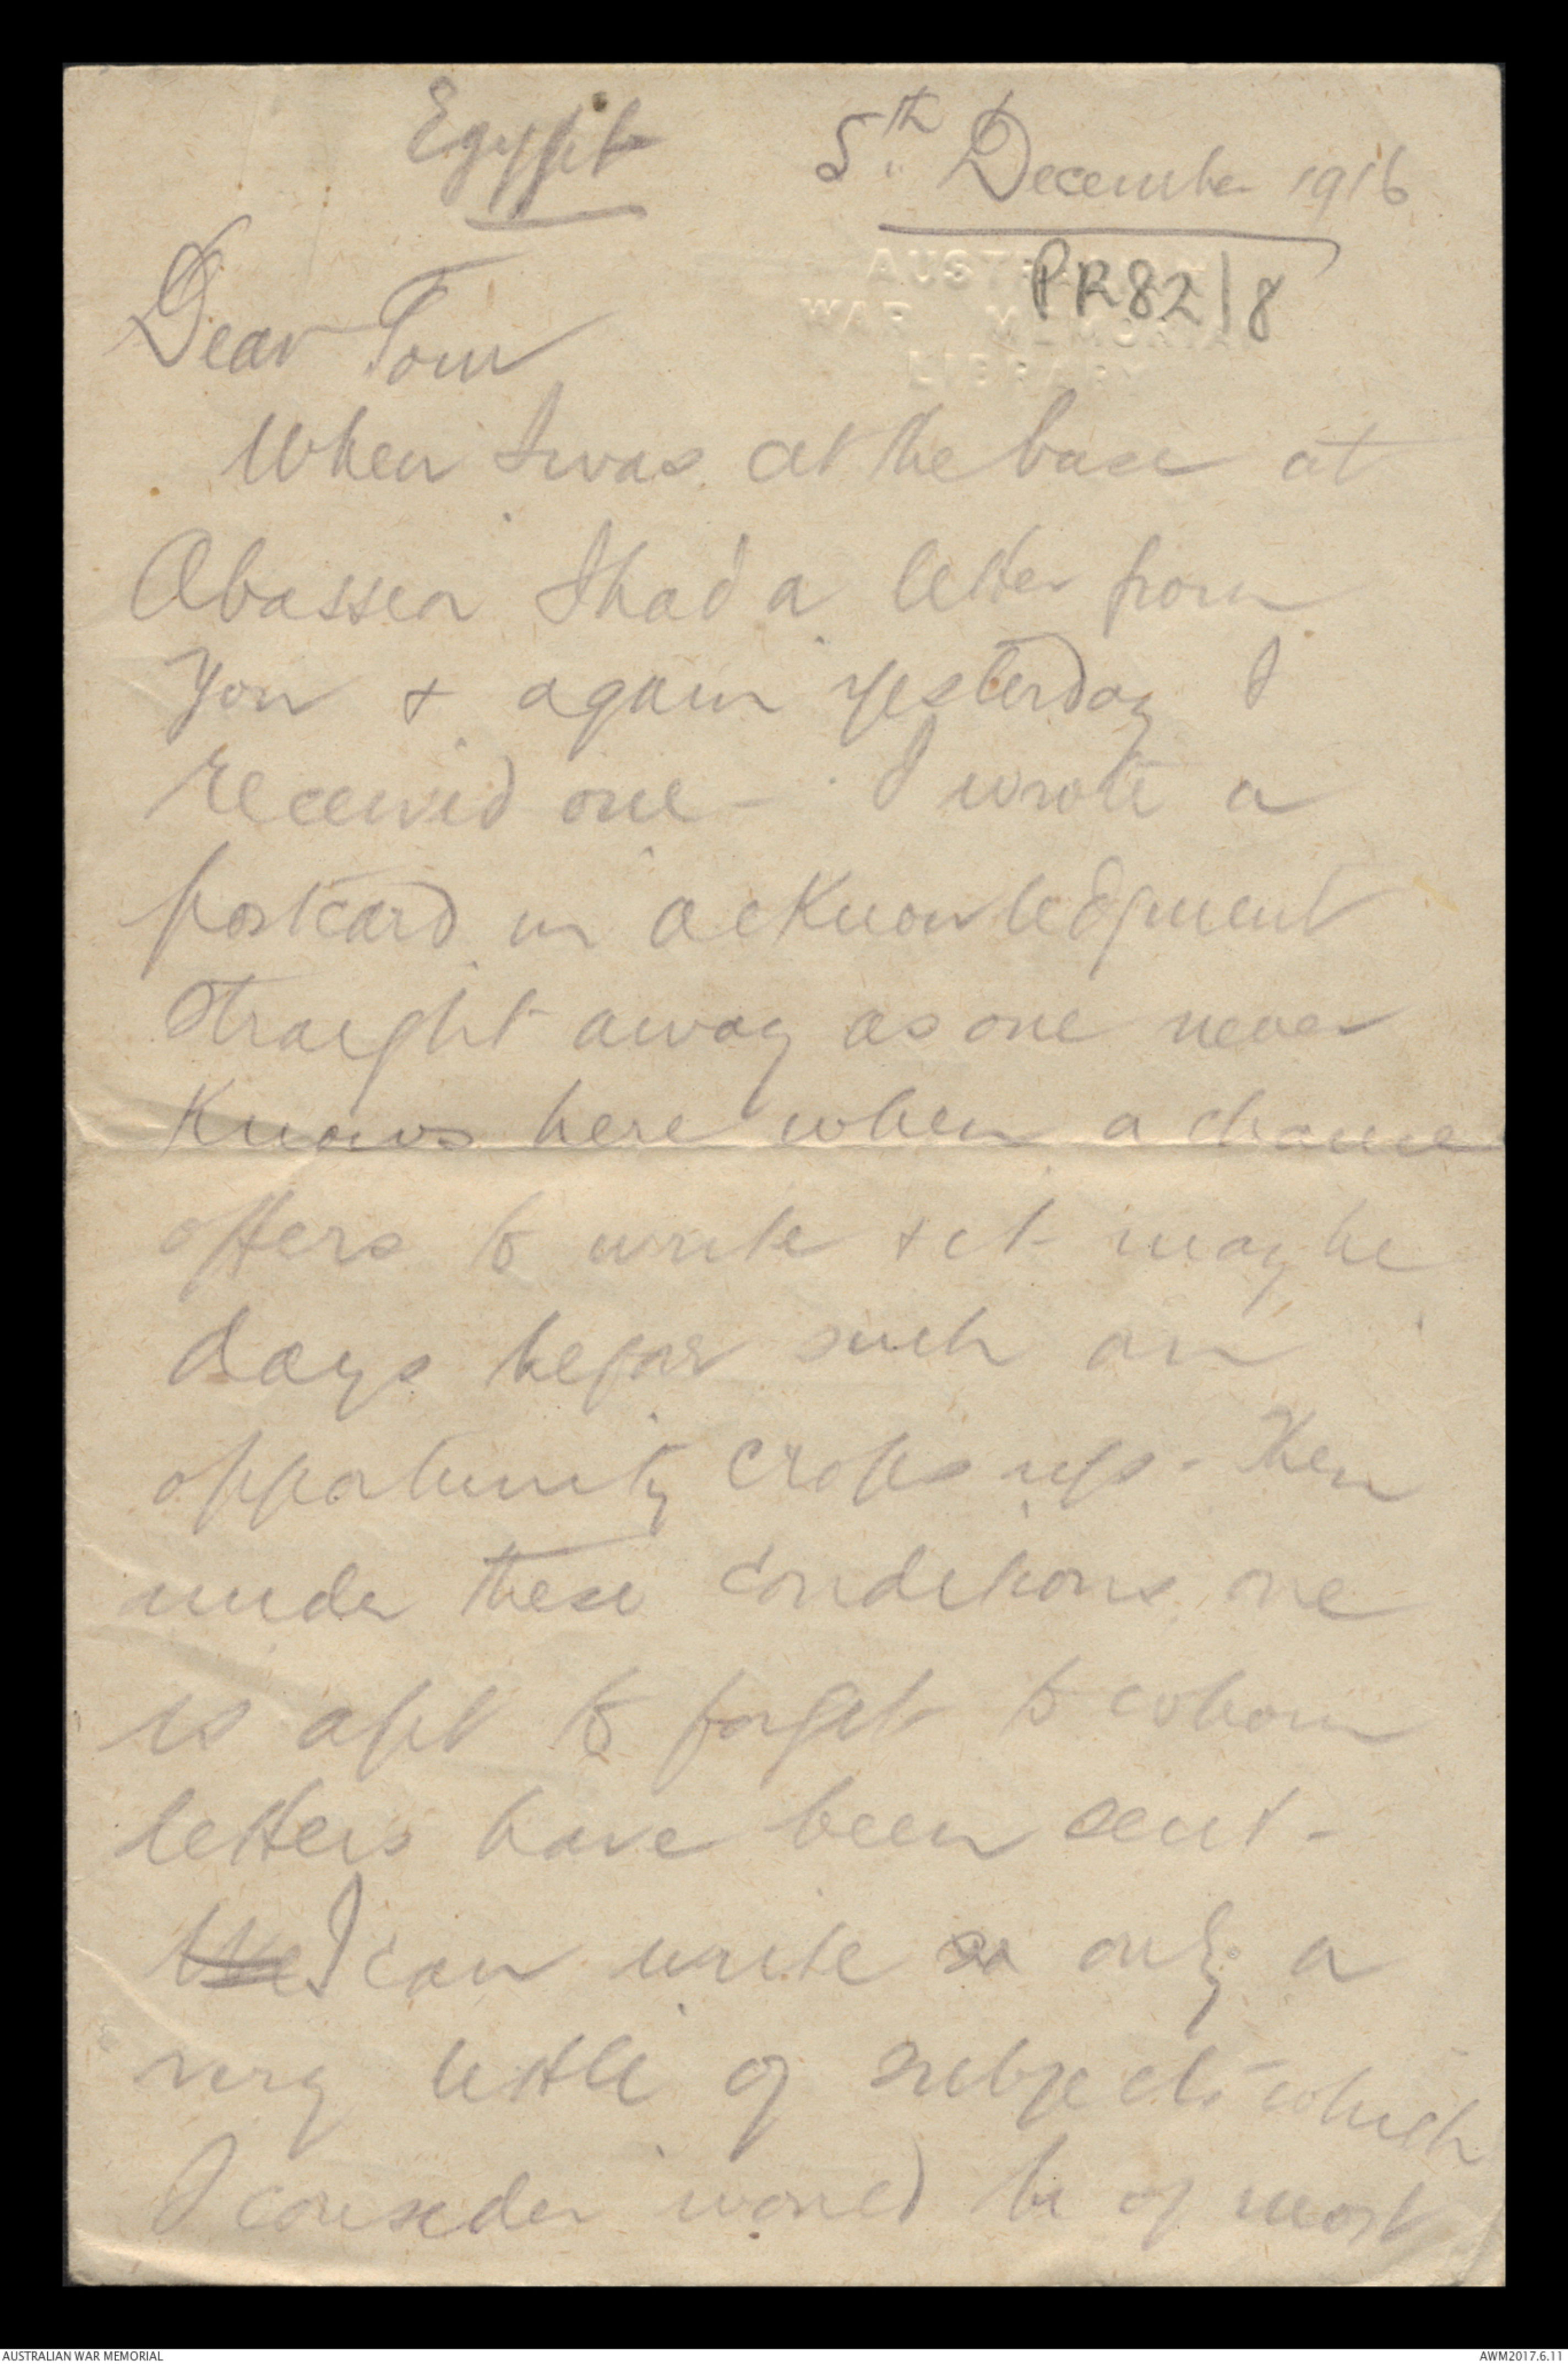 Egypt 5th. December 1916
AUSTRALIAN
WAR MEMORIAL
LIBRARY
PR82/8
Dear Tom
When I was at the base at
Abassea I had a letter from
you & again yesterday I
received one - I wrote a
postcard in acknowledgment
straight away as one never
knows here when a chance
offers to write & it may be
days before such an
opportunity crops up - Then
under these conditions one
is apt to forget to whom
letters have been sent -
I can write only a
very little of subjects which
I consider would be of most
AUSTRALIAN WAR MEMORIAL AWM2017.6.11